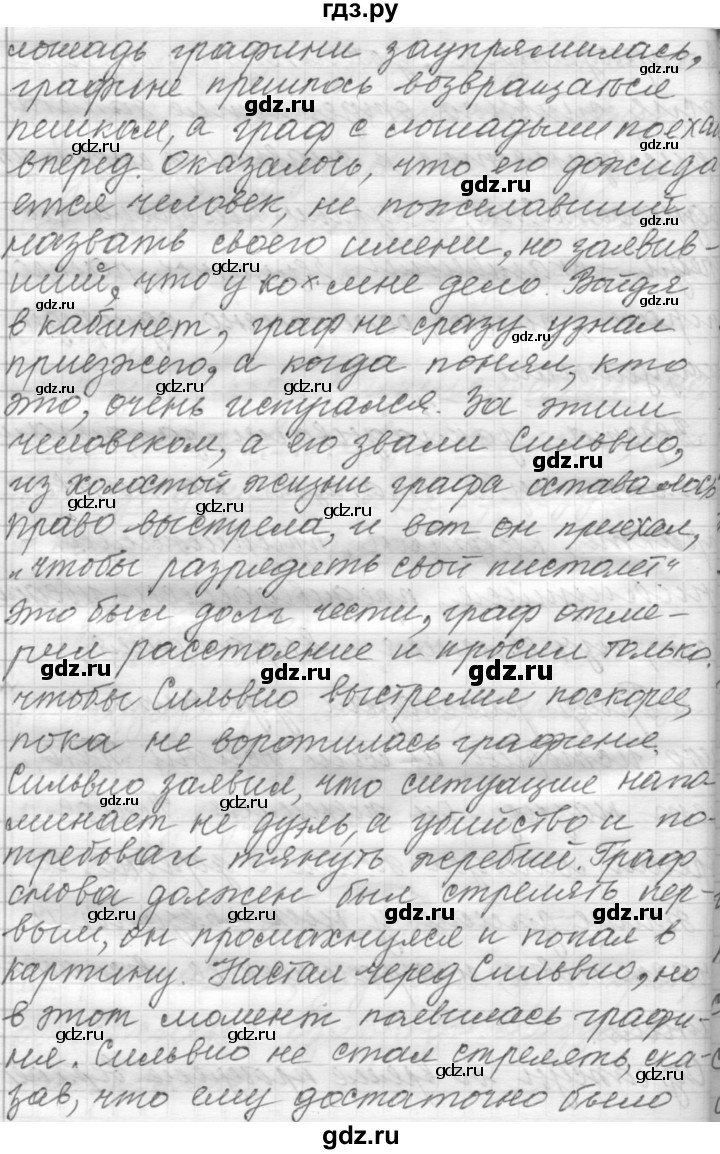 гдз.ру
лошадь графини заупрямилась,
графине пришлось возвращаться
пешком, а граф с лошадьми поехал
вперед. Оказалось, что его дожида
ется человек, не пожелавший
назвать своего имени, но заявив-
ший, что у
мне дело. Войдя
в кабинет, граф не сразу узнал
приезжего, а когда понял, кто
это, очень испугался. За этим
человеком, а его звали Сильвио,
из холостой жизни графа оставалось
право выстрела, и вот он приехал,
„чтобы разрядить свой пистолет“
Это был долг чести, граф отме-
рил расстояние и просил только,
чтобы Сильвио выстрелил поскорее,
пока не воротилась графиня.
Сильвио заявил, что ситуация напо
минает не дуэль, а убийство и по-
требовал тянуть жребий. Граф
снова должен был стрелять пер-
вым, он промахнулся и попал в
картину. Настал черед Сильвио, но
в этот момент появилась графи-
ня. Сильвио не стал стрелять, ска-
зав, что ему достаточно было
gdz.ru